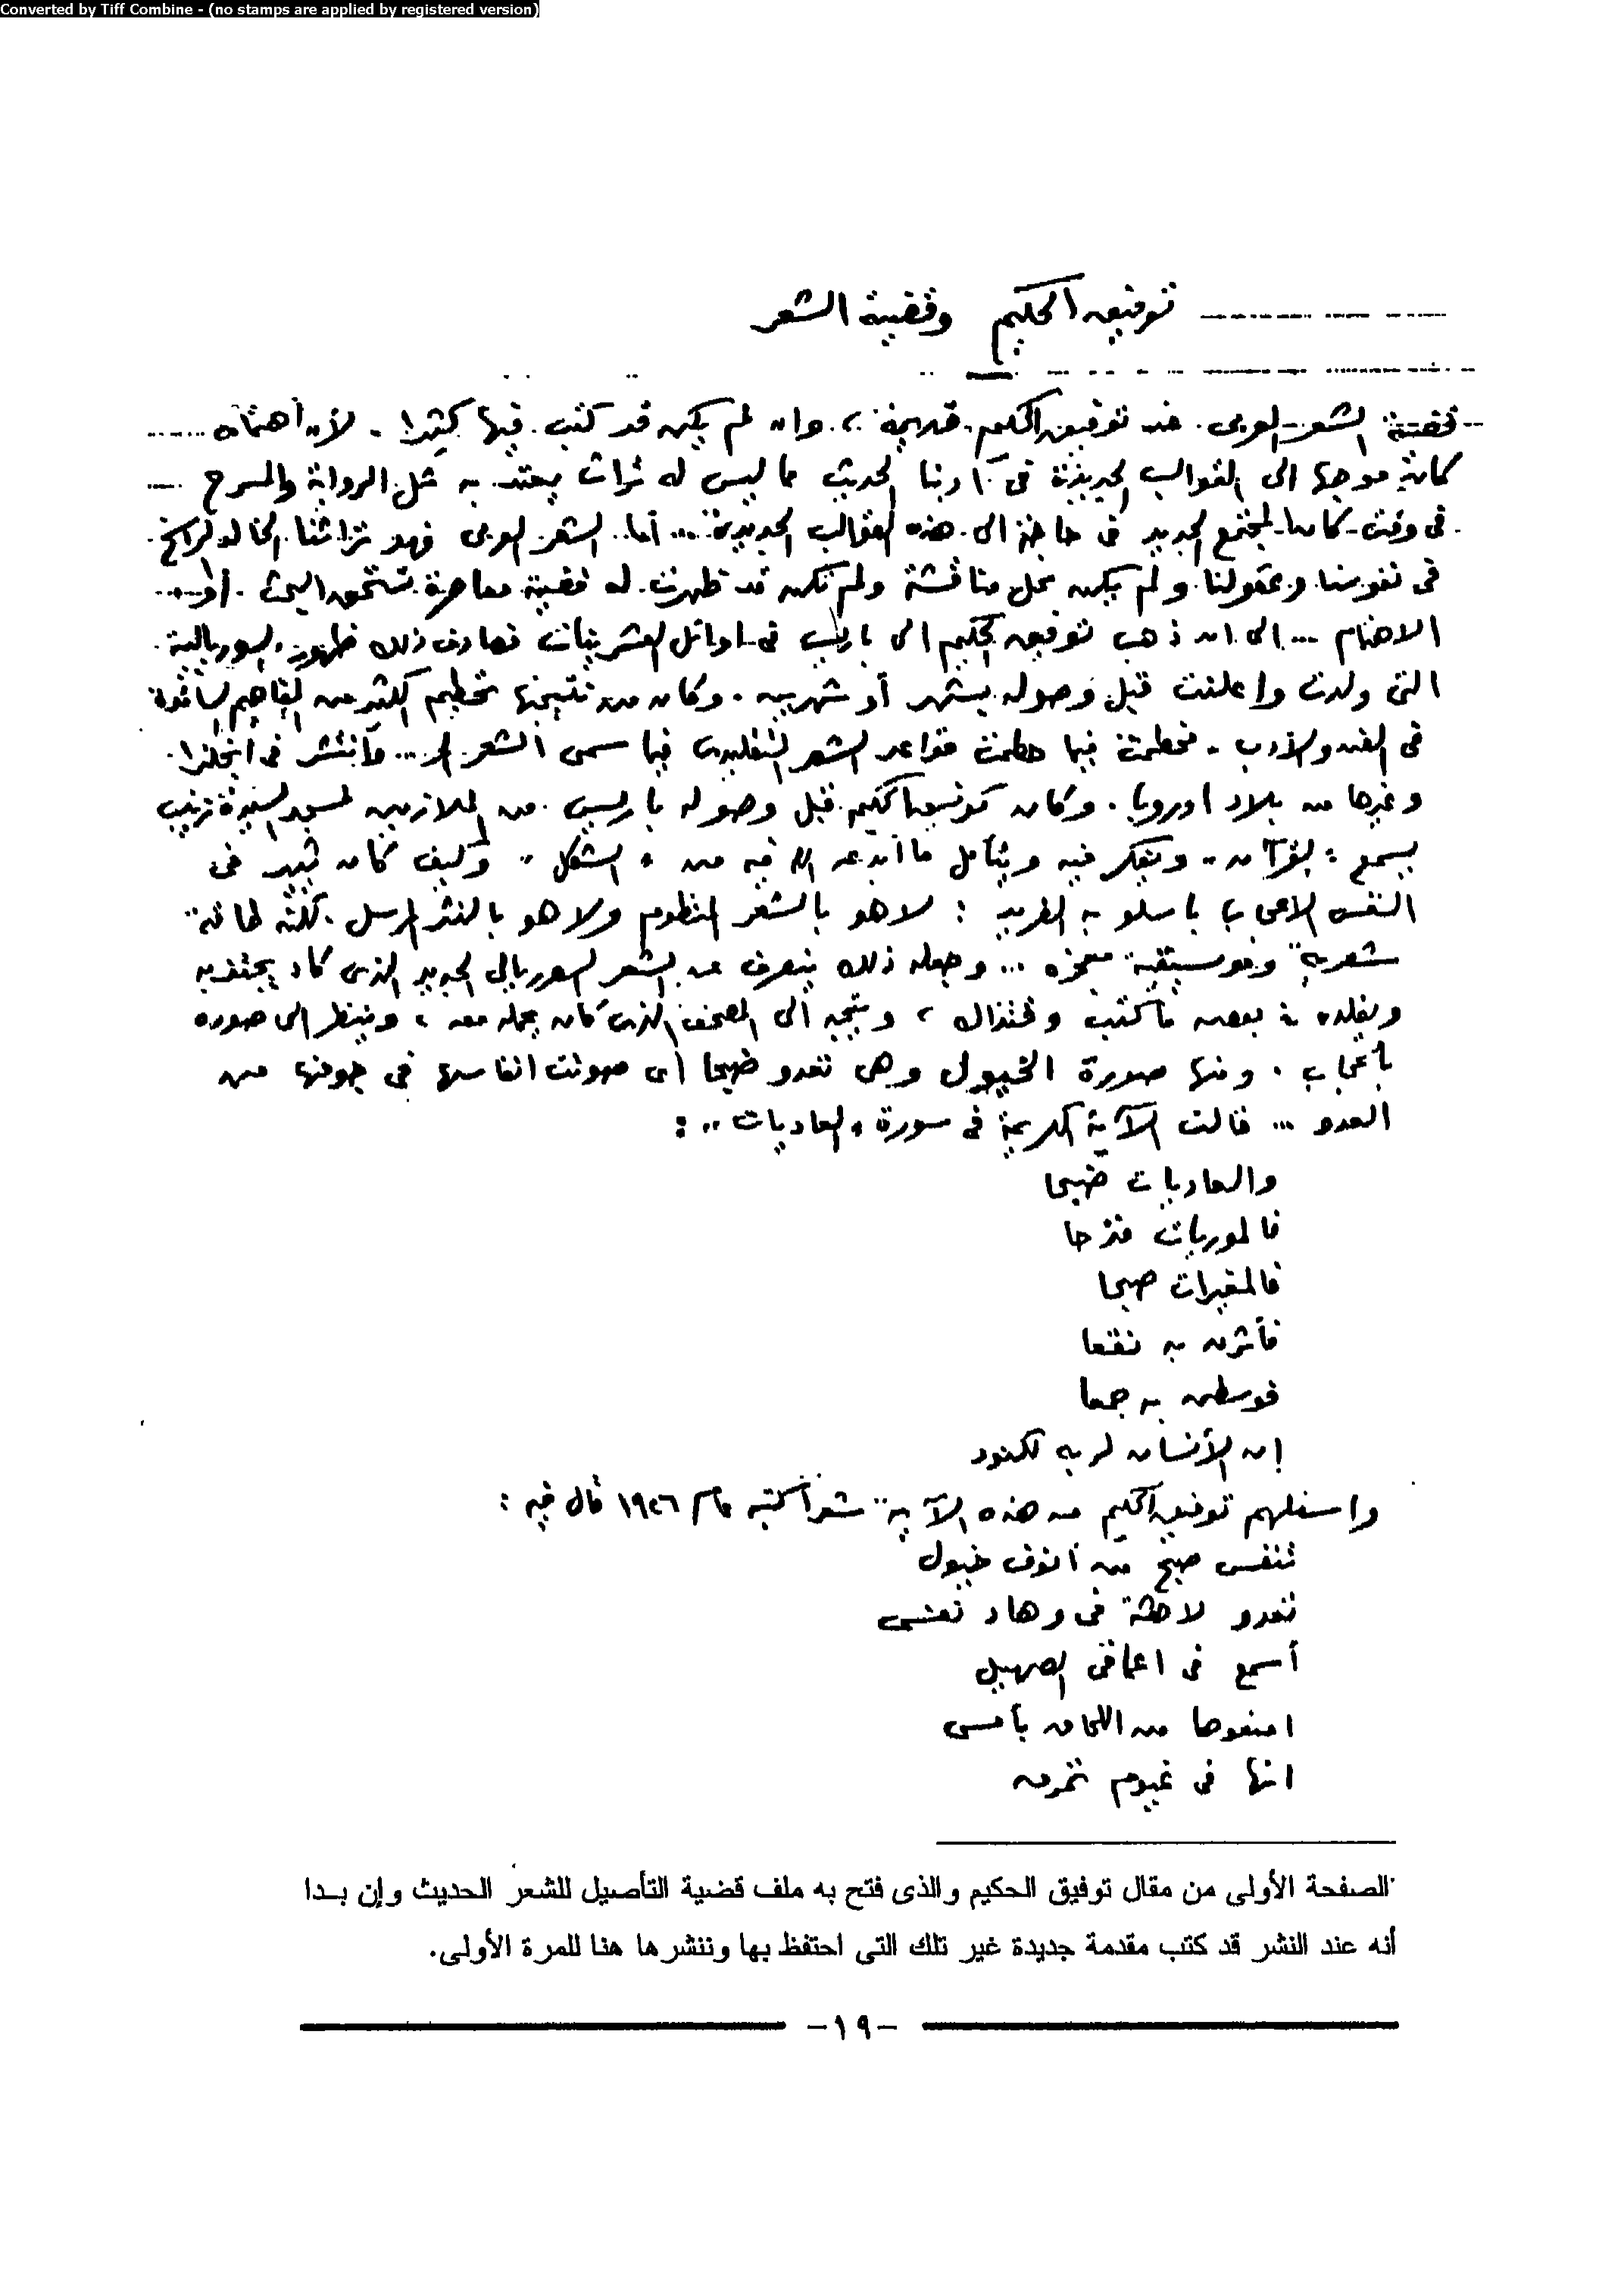 Converted by Tiff Combine - (no stamps are applied by registered version)
توفيق الحكيم وقضية الشعر
قضية الشعر العربى عند توفيق الحكيم قديمة ، وان لم يكن قد كتب فيها كثيرا . لأن اهتمامه
كان موجها الى القوالب الجديدة فى آدبنا الحديث مما ليس له تراث يعتد به مثل الرواية والمسرح
فى وقت كان المجتمع الجديد فى حاجة الى هذه القوالب الجديدة ... أما الشعر العربى فهو تراثنا الخالد الراسخ
فى نفوسنا وعقولنا ولم يكن محل مناقشة ولم تكن قد ظهرت له قضية معاصرة تستحق البحث أو
الاهتمام ... الى ان ذهب توفيق الحكيم الى باريس فى اوائل العشرينات فصادف ذلك ظهور السوريالية
التى ولدت واعلنت قبل وصوله بشهر أو شهرين . وكان من نتيجتها تحطيم الكثير من المفاهيم السائدة
فى الفن والأدب . فحطمت فيما حطمت قواعد الشعر التقليدى فيما سمى الشعر الحر ... وانتشر فى انجلترا
وغيرها من بلاد اوروبا . وكان توفيق الحكيم قبل وصوله باريس من الملازمين لمسجد السيدة زينب
يسمع القرآن .. ويفكر فيه ويتأمل ما أبدعه الله فيه من " الشكل " وكيف كان يثير فى
النفس الاعجاب بأسلوبه الفريد : لا هو بالشعر المنظوم ولا هو بالنثر المرسل . لكنه طاقة
شعرية وموسيقية معجزة ... وجعله ذلك ينصرف عن الشعر السوريالى الجديد الذى كاد يجتذبه
ويقلده فى بعض ما كتب وقتذاك ، ويتجه الى المصحف الذى كان يحمله معه ، وينظر الى صوره
بإعجاب . ومنها صورة الخيول وهى تعدو ضبحا أى صوت انفاسها فى جوفها من
العدو ... قالت الآية الكريمة فى سورة " العاديات " :
والعاديات ضبحا
فالموريات قدحا
فالمغيرات صبحا
فأثرن به نقعا
فوسطن به جمعا
إن الأنسان لربه لكنود
واستلهم توفيق الحكيم من هذه الآية شعراً كتبه عام ١٩٢٦ قال فيه :
تنفس صبح من أنوف خيول
تعدو لاهثة فى وهاد نفسى
أسمع فى اعماقى الصهيل
امنعوها من اللحاق بأمسى
انها فى غيوم تمرق
الصفحة الأولى من مقال توفيق الحكيم والذى فتح به ملف قضية التأصيل للشعر الحديث وإن بدا
أنه عند النشر قد كتب مقدمة جديدة غير تلك التى احتفظ بها وننشرها هنا للمرة الأولى.
-١٩-